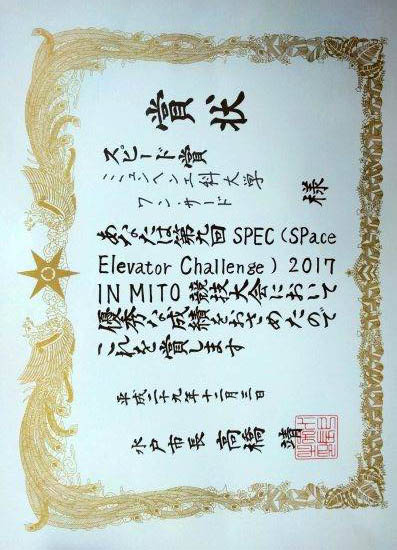 賞状
スピード賞
ミュンヘン工科大学
ワン・サード
様
あなたは第九回 SPEC (SPace
Elevator Challenge) 2017
IN MITO 競技大会において
優秀な成績をおさめたので
これを賞します
平成二十九年十二月三日
水戸市長 高橋 靖